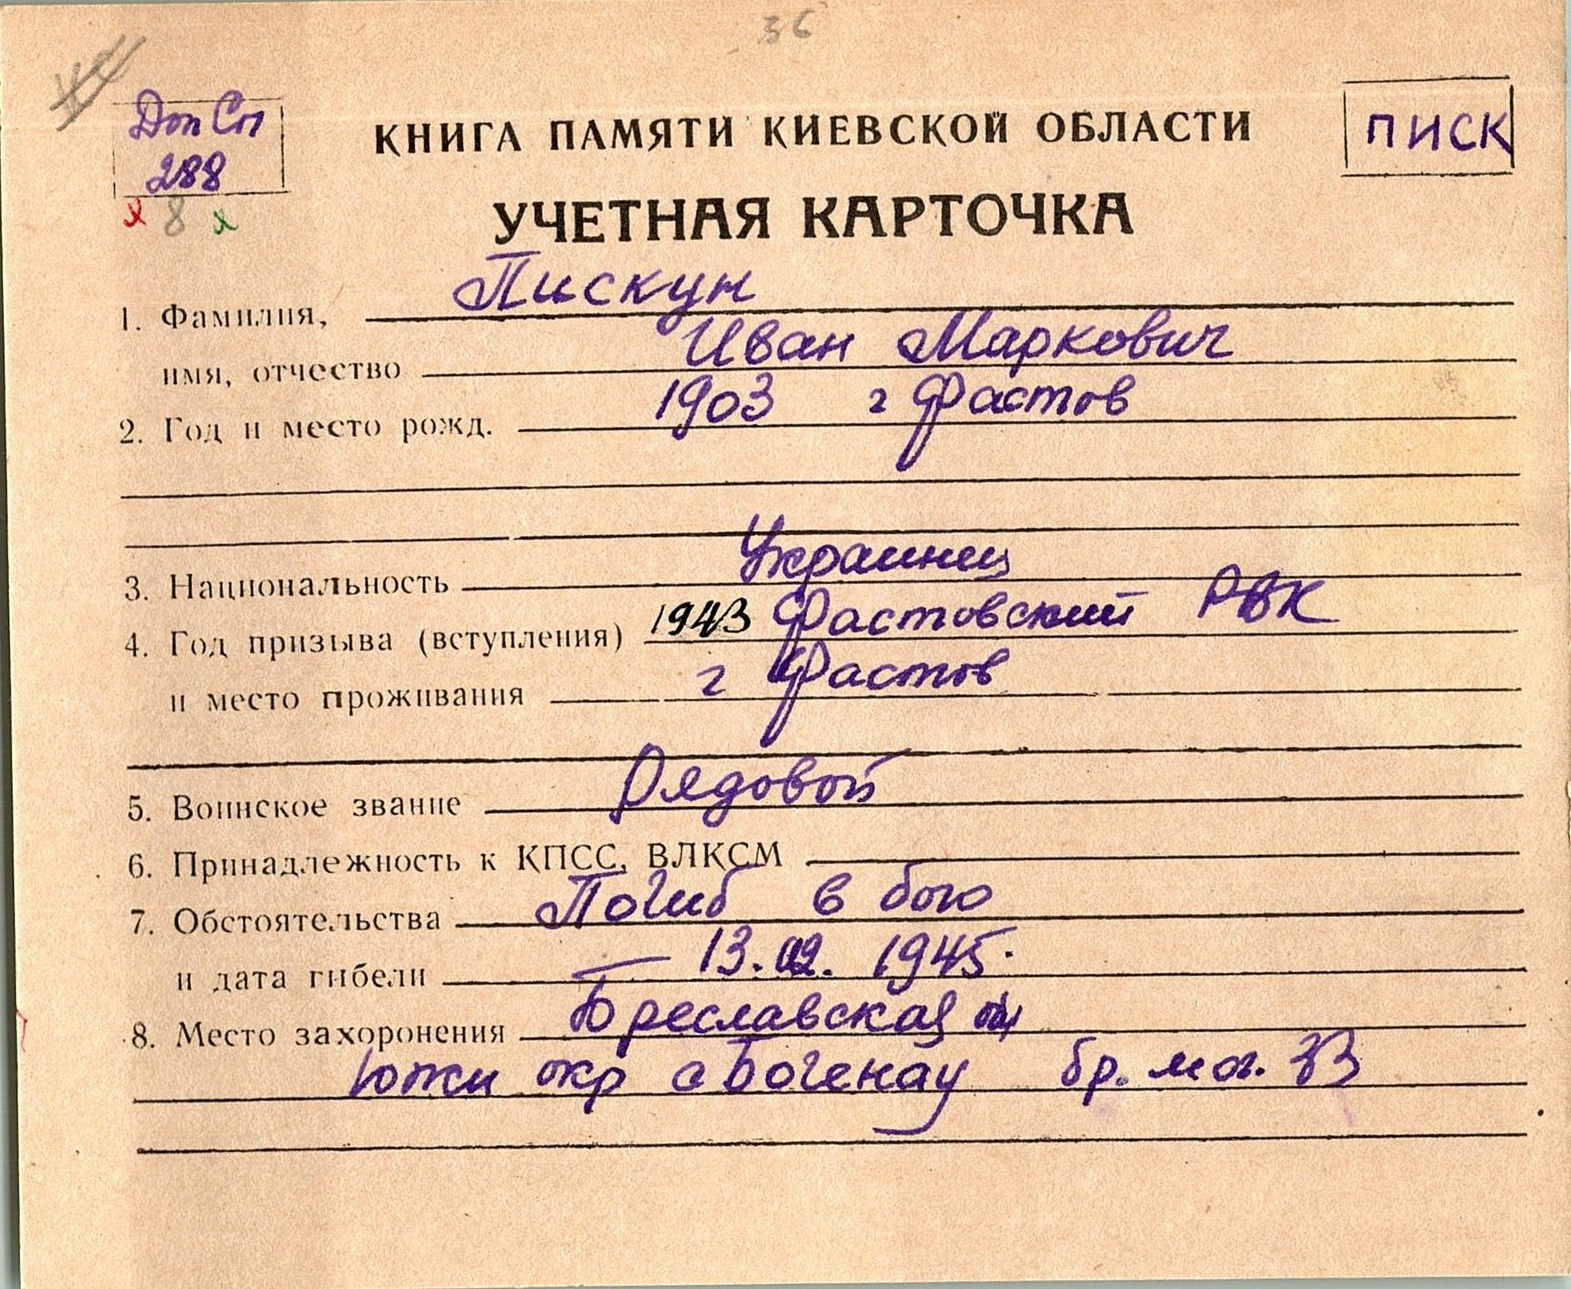 36
Доп Сп
288
8
КНИГА ПАМЯТИ КИЕВСКОЙ ОБЛАСТИ
ПИСК
УЧЕТНАЯ КАРТОЧКА
1. Фамилия, Пискун
имя, отчество Иван Маркович
2. Год и место рожд. 1903 г Фастов
3. Национальность Украинец
4. Год призыва (вступления) 1943 Фастовский РВК
и место проживания г Фастов
5. Воинское звание Рядовой
6. Принадлежность к КПСС, ВЛКСМ
7. Обстоятельства Погиб в бою
и дата гибели — 13.02. 1945.
8. Место захоронения Бреславская
южн окр с Богенау бр. мог. 33